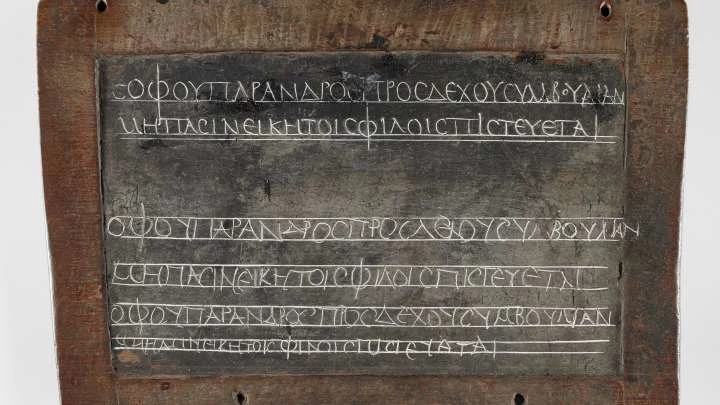 ΣΟΦΟΥΠΑΡΑΝΔΡΟΣΠΡΟΣΔΕΧΟΥΣΥΜΒΟΥΛΙΑΝ
ΜΗΠΑΣΙΝΕΙΚΗΤΟΙΣΦΙΛΟΙΣΠΙΣΤΕΥΕΤΑΙ
ΟΦΟΥΠΑΡΑΝΔΡΟΣΠΡΟΣΔΕΧΟΥΣΥΜΒΟΥΛΙΑΝ
ΜΗΠΑΣΙΝΕΙΚΗΤΟΙΣΦΙΛΟΙΣΠΙΣΤΕΥΕΤΑΙ
ΟΦΟΥΠΑΡΑΝΔΡΟΣΠΡΟΣΔΕΧΟΥΣΥΜΒΟΥΛΙΑΝ
ΜΗΠΑΣΙΝΕΙΚΗΤΟΙΣΦΙΛΟΙΣ